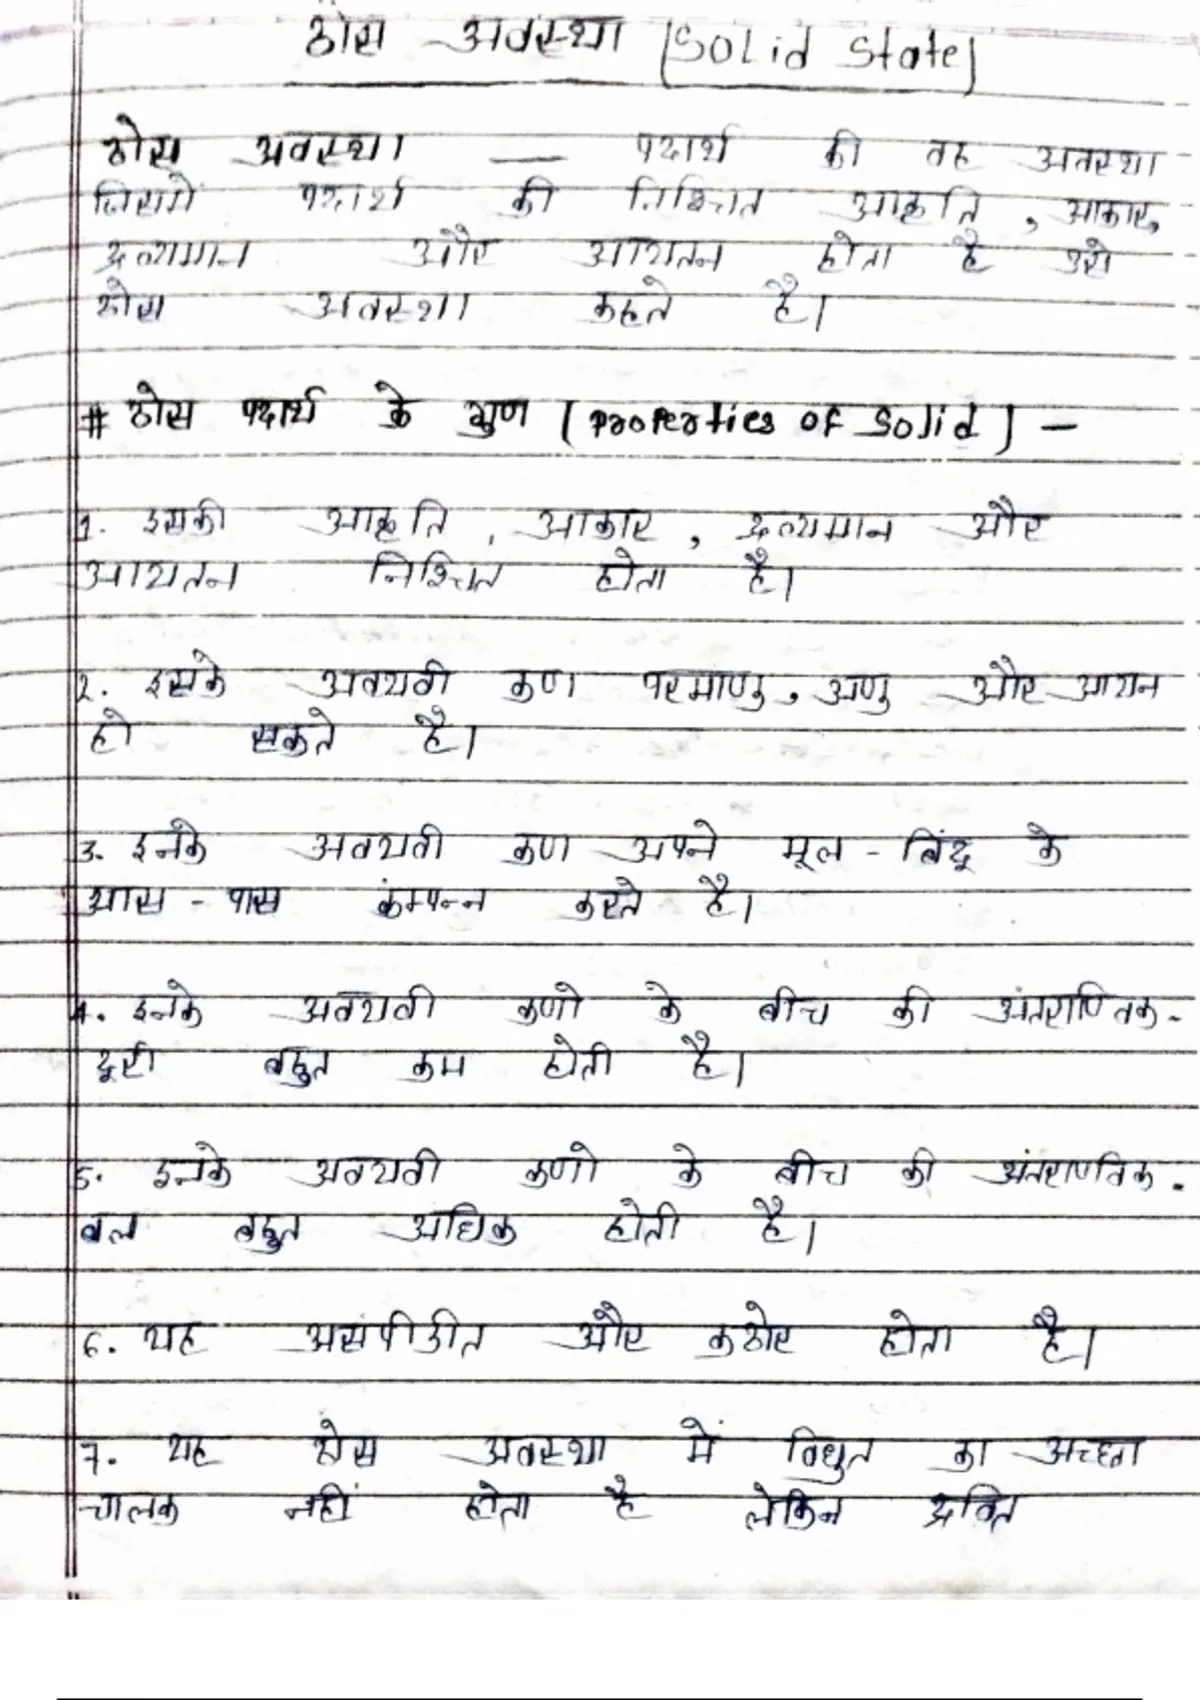 ठोस अवस्था (Solid State)
ठोस अवस्था — पदार्थ की वह अवस्था
जिसमें पदार्थ की निश्चित आकृति, आकार,
द्रव्यमान और आयतन होता है उसे
ठोस अवस्था कहते है।
# ठोस पदार्थ के गुण (Properties of Solid) -
1. इसकी आकृति, आकार, द्रव्यमान और
आयतन निश्चित होता है।
2. इसके अवयवी कण परमाणु, अणु और आयन
हो सकते है।
3. इनके अवयवी कण अपने मूल-बिंदू के
आस-पास कंम्पन्न करते है।
4. इनके अवयवी कणो के बीच की अंतराण्विक-
दूरी बहुत कम होती है।
5. इनके अवयवी कणो के बीच की अंतराणविक.
बल बहुत अधिक होती है।
6. यह असंपीडीत और कठोर होता है।
7. यह ठोस अवस्था में विधुत का अच्छा
चालक नहीं होता है लेकिन द्रवित